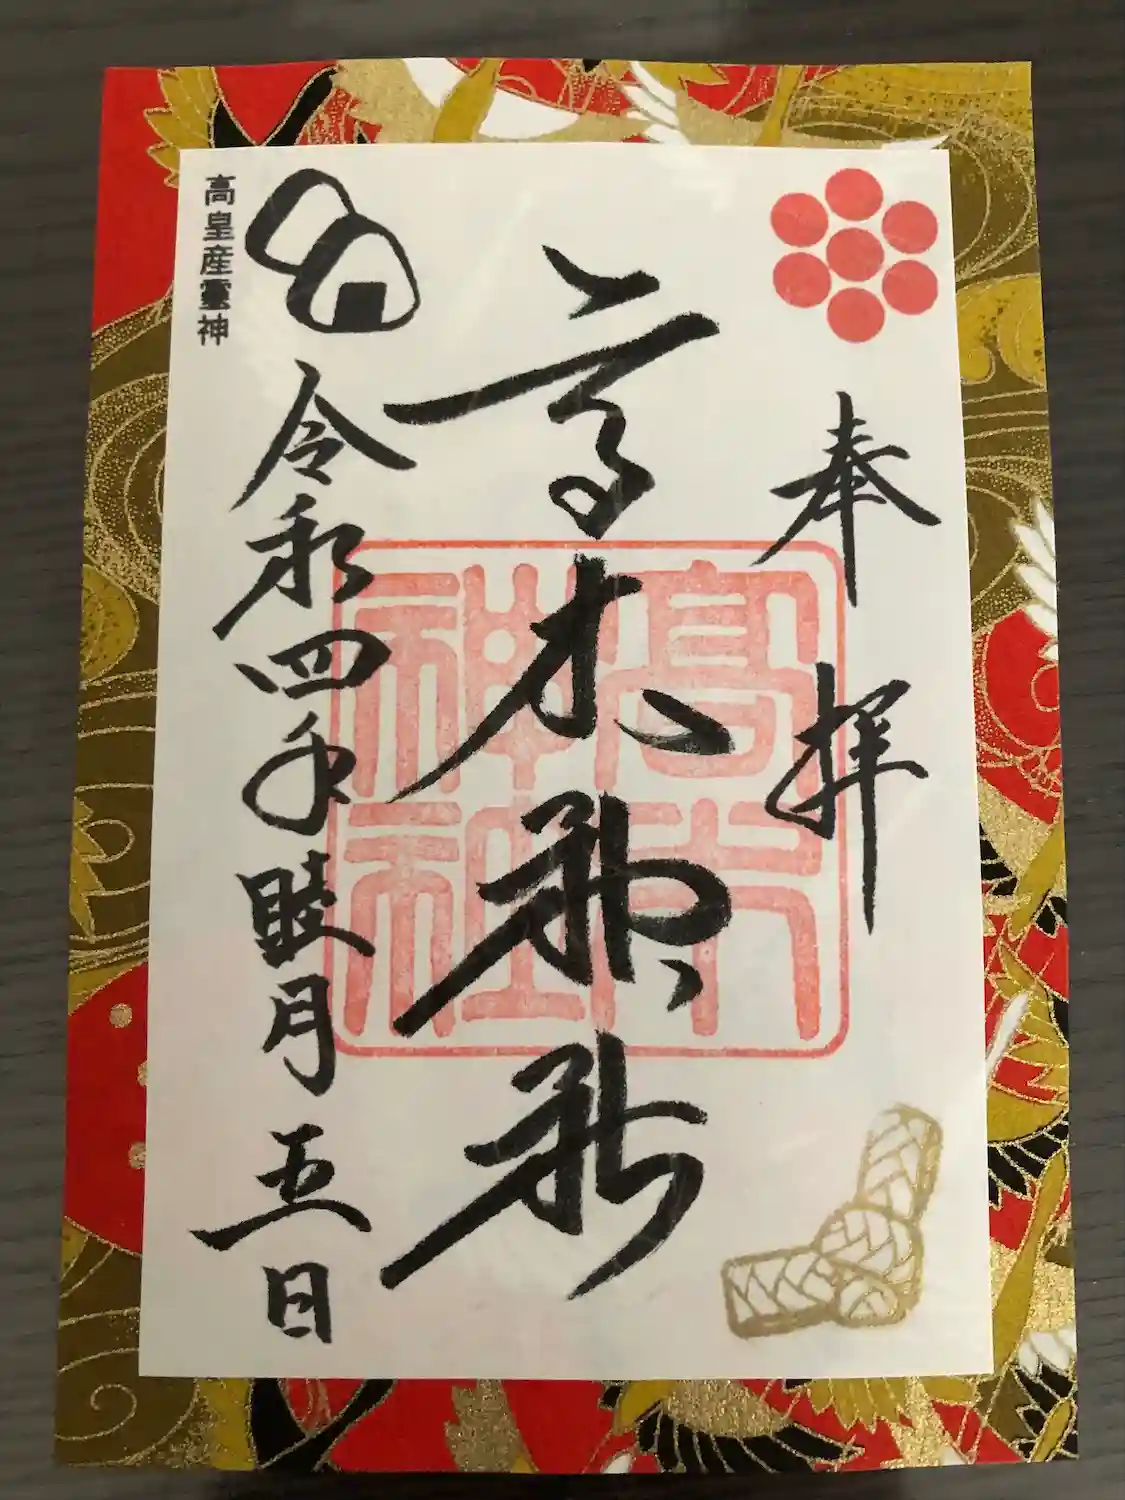 奉拝
高木神社
高木神社
令和四年睦月五日
高皇産靈神